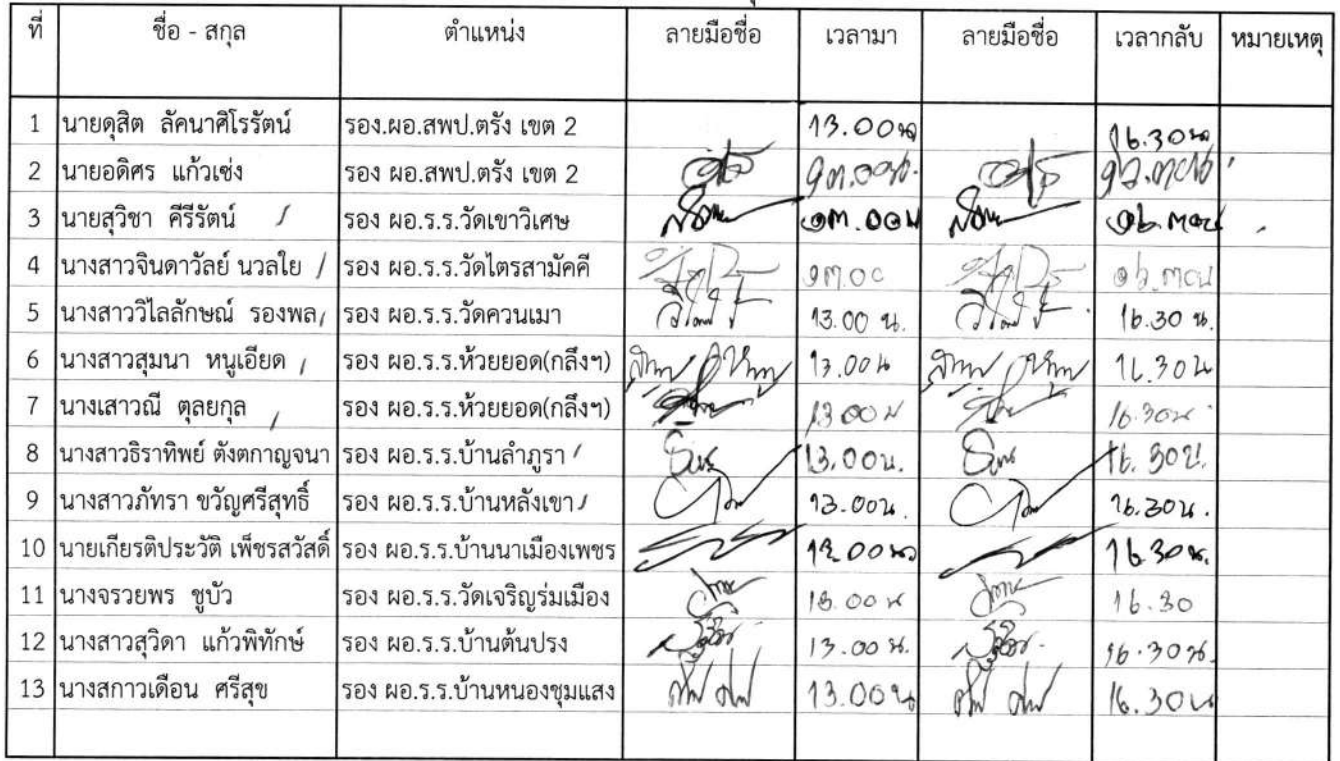 ที่ ชื่อ - สกุล ตำแหน่ง ลายมือชื่อ เวลามา ลายมือชื่อ เวลากลับ หมายเหตุ
1 นายดุสิต ลัคนาศิโรรัตน์ รอง.ผอ.สพป.ตรัง เขต 2 13.00น 16.30น
2 นายอดิศร แก้วเซ่ง รอง ผอ.สพป.ตรัง เขต 2 ๑๓.๐๐น. ๑๖.๓๐น
3 นายสุวิชา คีรีรัตน์ / รอง ผอ.ร.ร.วัดเขาวิเศษ ๑๓.๐๐น ๑๖.๓๐น
4 นางสาวจินดาวัลย์ นวลใย / รอง ผอ.ร.ร.วัดไตรสามัคคี ๑๓.๐๐ ๑๖.๓๐น
5 นางสาววิไลลักษณ์ รองพล / รอง ผอ.ร.ร.วัดควนเมา 13.00 น. 16.30 น.
6 นางสาวสุมนา หนูเอียด / รอง ผอ.ร.ร.ห้วยยอด(กลึงฯ) 13.00น 16.30น
7 นางเสาวณี ตุลยกุล / รอง ผอ.ร.ร.ห้วยยอด(กลึงฯ) 13.00น 16.30น
8 นางสาวธิราทิพย์ ตังตกาญจนา รอง ผอ.ร.ร.บ้านลำภูรา / 13.00น. 16.30น.
9 นางสาวภัทรา ขวัญศรีสุทธิ์ รอง ผอ.ร.ร.บ้านหลังเขา / 13.00น. 16.30น.
10 นายเกียรติประวัติ เพ็ชรสวัสดิ์ รอง ผอ.ร.ร.บ้านนาเมืองเพชร 13.00น 16.30น.
11 นางจรวยพร ชูบัว รอง ผอ.ร.ร.วัดเจริญร่มเมือง 13.00น 16.30
12 นางสาวสุวิดา แก้วพิทักษ์ รอง ผอ.ร.ร.บ้านต้นปรง 13.00น. 16.30น.
13 นางสกาวเดือน ศรีสุข รอง ผอ.ร.ร.บ้านหนองชุมแสง 13.00น 16.30น